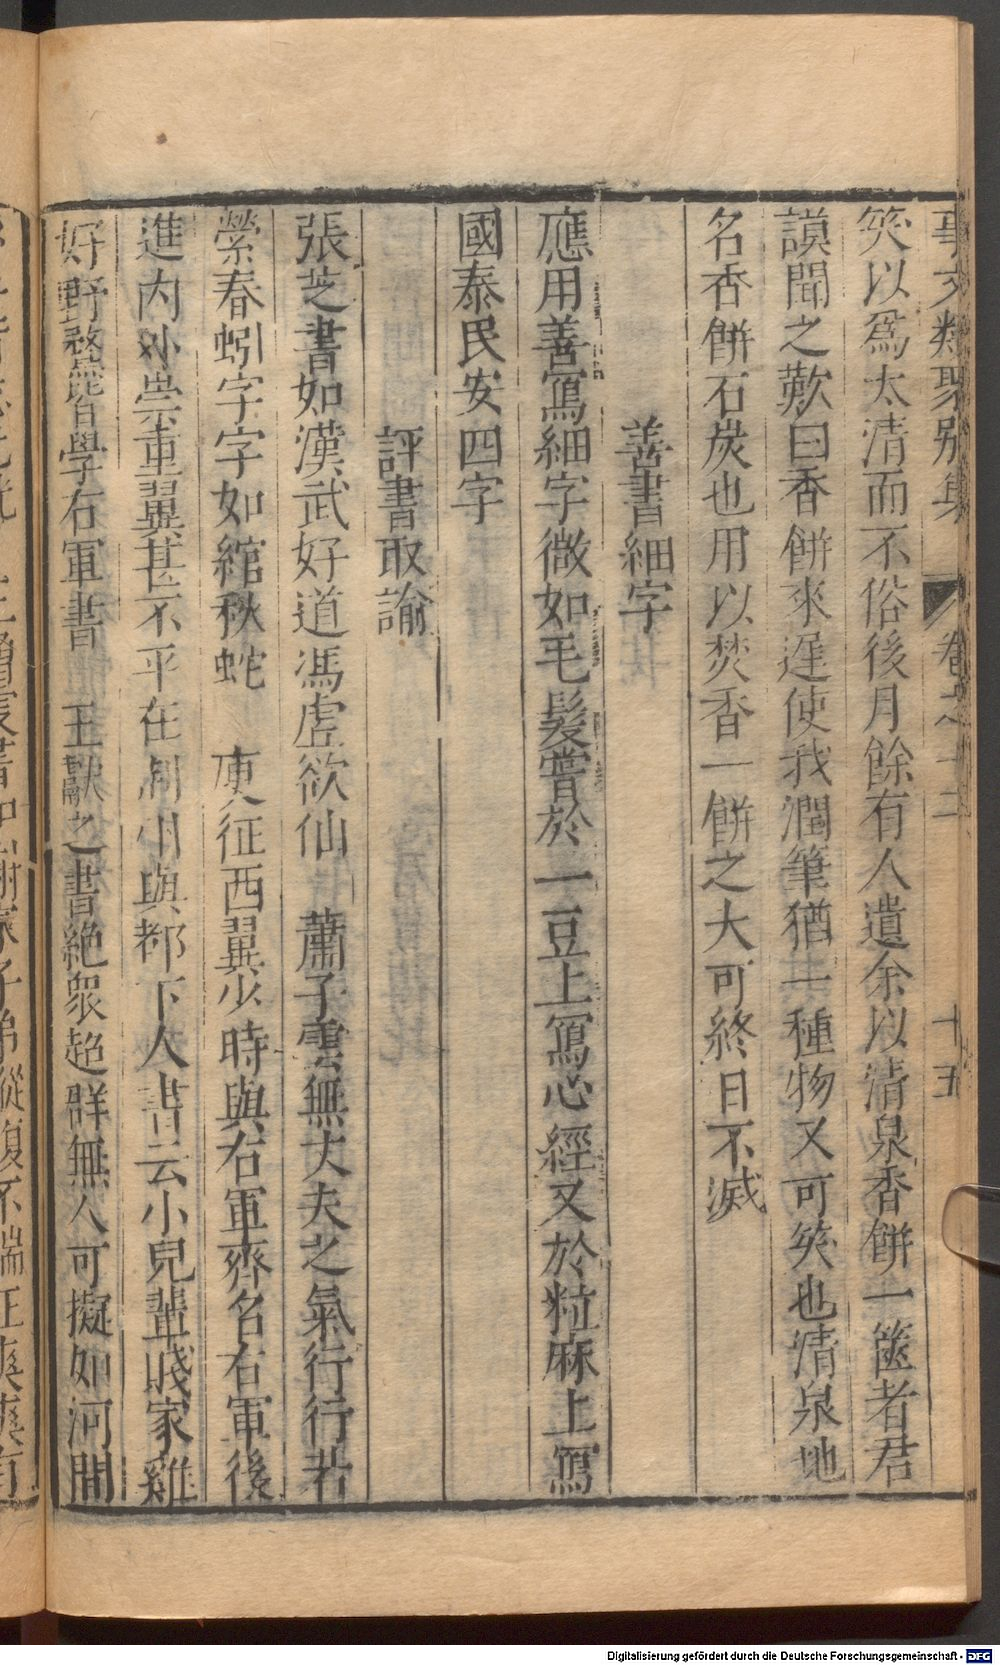 事文類聚別集 卷之十二 十五
笑以為太清而不俗後月餘有人遺余以清泉香餅一篋者君
謨聞之歎曰香餅來遲使我潤筆猶一種物又可笑也清泉地
名香餅石炭也用以焚香一餅之大可終日不滅
善書細字
應用善寫細字微如毛髮嘗於一豆上寫心經又於粒麻上寫
國泰民安四字
評書取諭
張芝書如漢武好道馮虛欲仙 蕭子雲無丈夫之氣行行若
縈春蚓字字如綰秋蛇 庾征西翼少時與右軍齊名右軍後
進內外崇重翼甚不平在荊州與都下人書云小兒輩賤家雞
好野鶩皆學右軍書 王獻之書絕衆超群無人可擬如河間
Digitalisierung gefördert durch die Deutsche Forschungsgemeinschaft - DFG